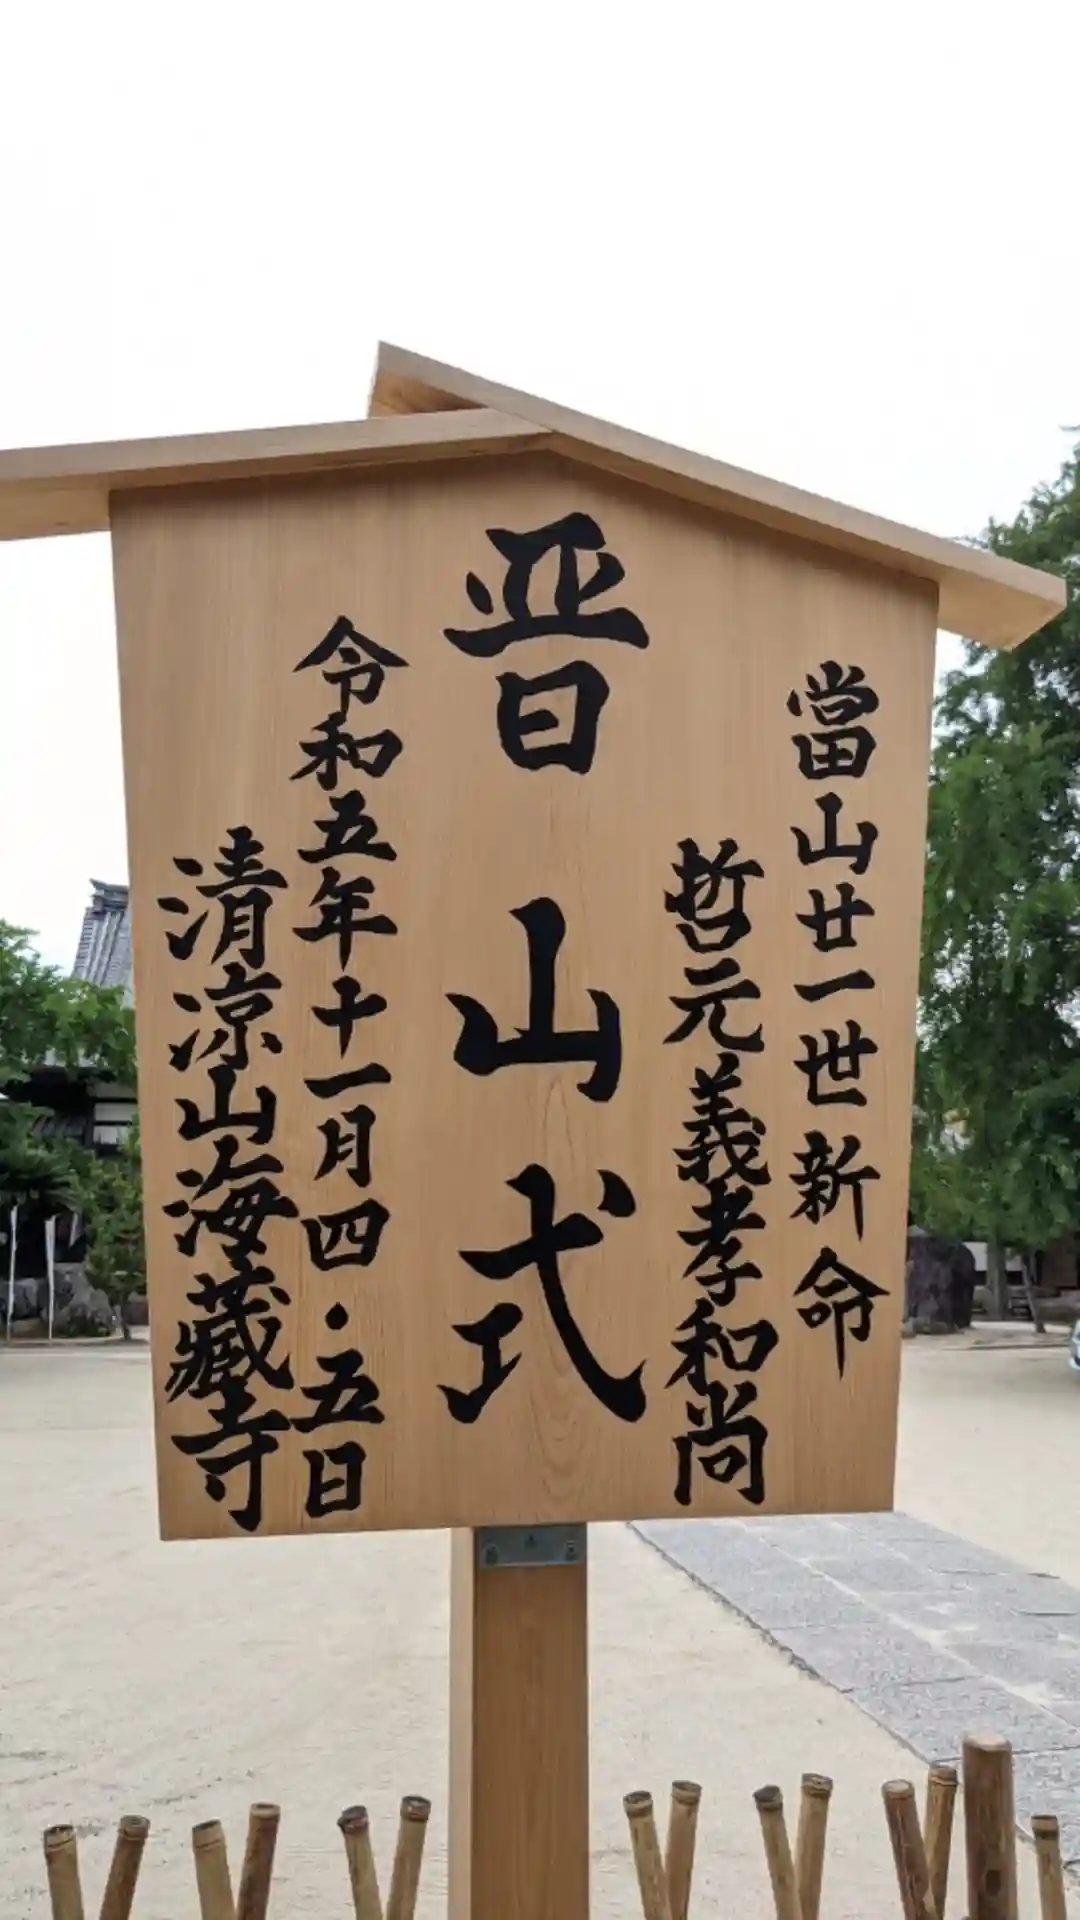 當山廿一世新命
哲元義孝和尚
晋山式
令和五年十一月四・五日
清涼山海藏寺